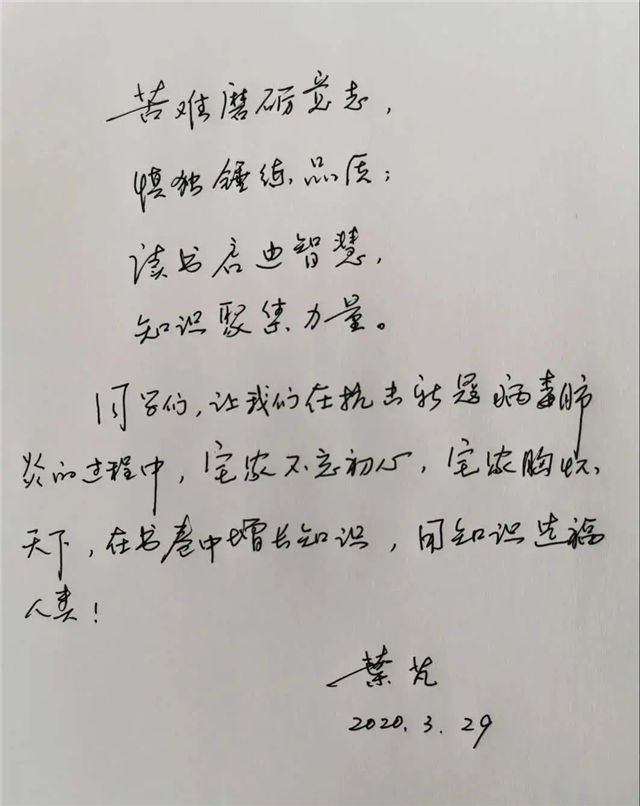 苦难磨砺意志，
慎独锤练品质；
读书启迪智慧，
知识聚集力量。
同学们，让我们在抗击新冠病毒肺
炎的过程中，宅家不忘初心，宅家胸怀
天下，在书卷中增长知识，用知识造福
人类！
2020.3.29